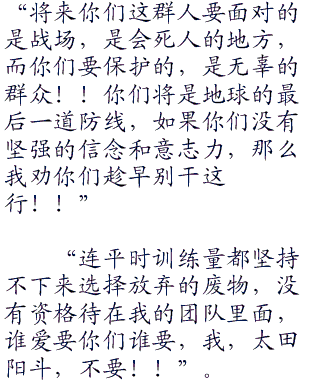 “将来你们这群人要面对的
是战场，是会死人的地方，
而你们要保护的，是无辜的
群众！！你们将是地球的最
后一道防线，如果你们没有
坚强的信念和意志力，那么
我劝你们趁早别干这
行！！”
“连平时训练量都坚持
不下来选择放弃的废物，没
有资格待在我的团队里面，
谁爱要你们谁要，我，太田
阳斗，不要！！”。